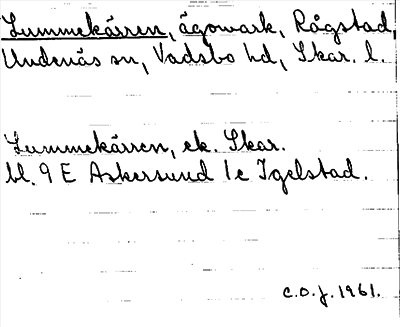 Lummekärren, ägomark, Rågstad,
Undenäs sn, Vadsbo hd, Skar. l.
Lummekärren, ek. Skar.
bl. 9 E Askersund 1e Igelstad.
C.O.J. 1961.